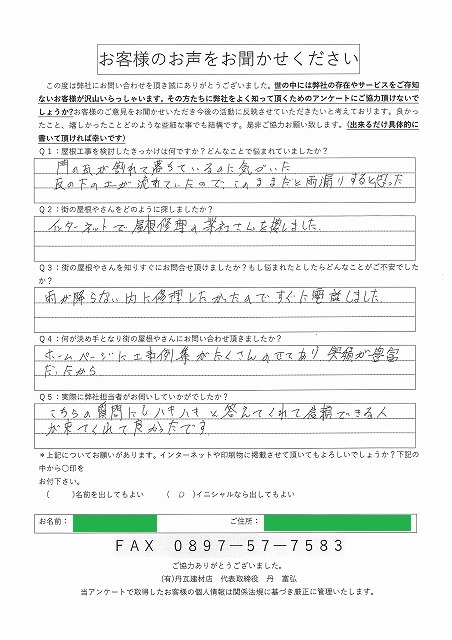 お客様のお声をお聞かせください
この度は弊社にお問い合わせを頂き誠にありがとうございました。世の中には弊社の存在やサービスをご存知
ないお客様が沢山いらっしゃいます。その方たちに弊社をよく知って頂くためのアンケートにご協力頂けないで
しょうか?お客様のご意見をお聞かせいただき今後の活動に反映させていただきたいと考えております。良かっ
たこと、嬉しかったことどのような些細な事でも結構です。是非ご協力お願い致します。(出来るだけ具体的に
書いて頂ければ幸いです)
Q1:屋根工事を検討したきっかけは何ですか?どんなことで悩まれていましたか?
門の瓦が割れて落ちているのに気がいた
瓦の下の土が流れていたので、このままだと雨漏りすると思った
Q2:街の屋根やさんをどのように探しましたか?
インターネットで屋根修理の業社さんを探しました。
Q3:街の屋根やさんを知りすぐにお問合せ頂けましたか?もし悩まれたとしたらどんなことがご不安でした
か?
雨が降らない内に修理したかったのですぐに電話しました
Q4:何が決め手となり街の屋根やさんにお問い合わせ頂きましたか?
ホームページに工事例集がたくさんのせてあり実績が豊富
だったから
Q5:実際に弊社担当者がお伺いしていかがでしたか?
こちらの質問にもハキハキと答えてくれて信頼できる人
が来てくれて良かったです。
*上記についてお願いがあります。インターネットや印刷物に掲載させて頂いてもよろしいでしょうか?下記の
中から〇印を
お付下さい。
( )名前を出してもよい ( 〇 )イニシャルなら出してもよい
お名前: ご住所:
FAX 0897-57-7583
ご協力ありがとうございました。
(有)丹瓦建材店 代表取締役 丹 富弘
当アンケートで取得したお客様の個人情報は関係法規に基づき厳正に管理いたします。